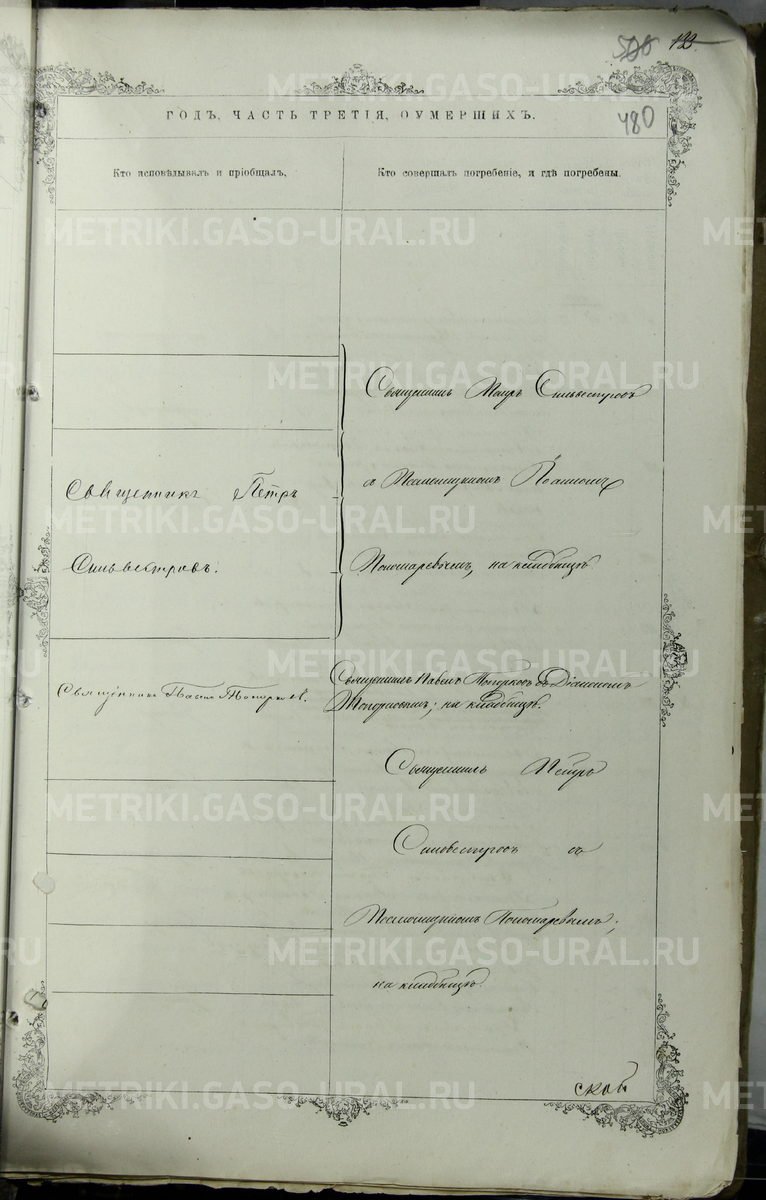 500 123
480
ГОДЪ, ЧАСТЬ ТРЕТІЯ, ОУМЕРШИХЪ.
Кто исповѣдывалъ и пріобщалъ,
Кто совершалъ погребеніе, и гдѣ погребены.
Священникъ Петръ Сильвестровъ
Священникъ Петръ
съ Псаломщикомъ Іоанномъ
Сильвестровъ.
Пономаревымъ, на кладбищѣ
Священникъ Павелъ Топорковъ.
Священникъ Павелъ Топорковъ съ Діакономъ
на кладбищѣ.
Священникъ Петръ
Сильвестровъ съ
Псаломщикомъ Пономаревымъ;
на кладбищѣ.
METRIKI.GASO-URAL.RU